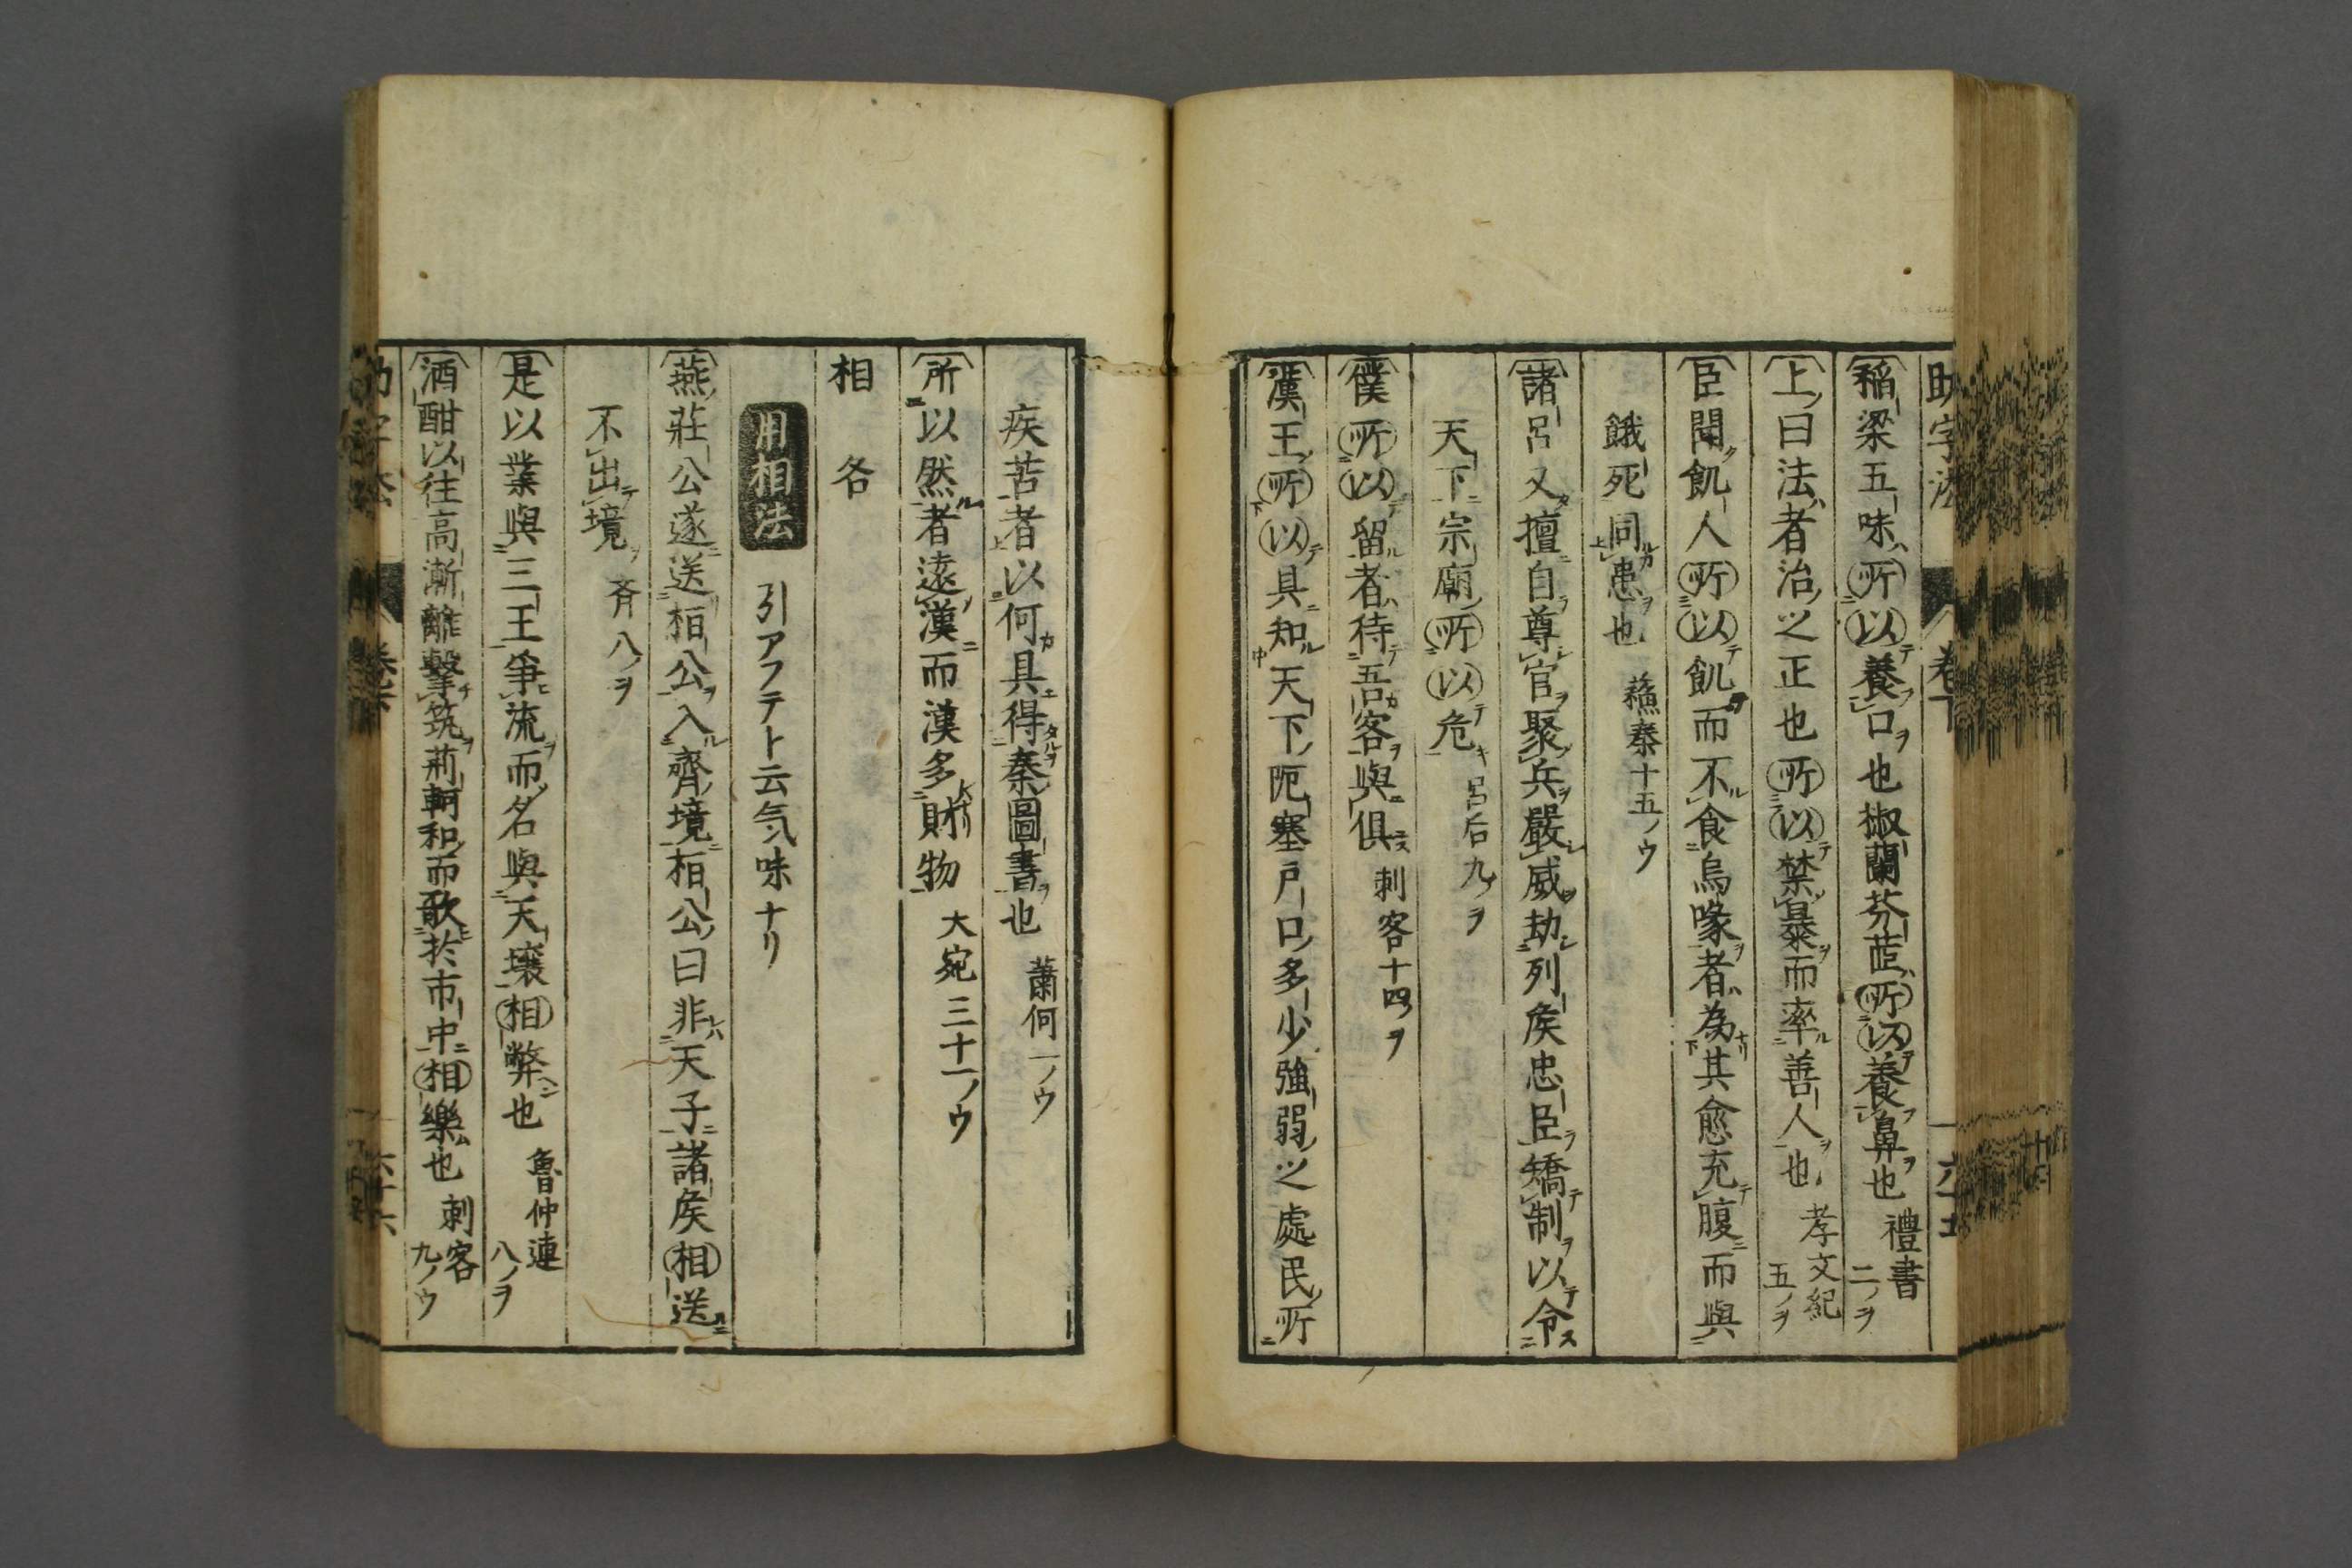 助字法 卷下 六十五
稲梁五味所以養口也椒蘭芬茝所以養鼻也 禮書二ノヲ
上曰法者治之正也所以禁暴而率善人也 孝文紀五ノヲ
臣聞飢人所以飢而不食烏喙者為其愈充腹而與
餓死同患也 蘓秦十五ノウ
諸呂又擅自尊官聚兵嚴威劫列矦忠臣矯制以令
天下宗廟所以危 呂后九ノヲ
僕所以留者待吾客與俱 刺客十四ヲ
漢王所以具知天下阨塞戸口多少強弱之處民所
疾苦者以何具得秦圖書也 蕭何一ノウ
所以然者遠漢而漢多財物 大宛三十一ノウ
相 各
用相法 引アフテト云気味ナリ
燕莊公遂送桓公入齊境桓公曰非天子諸矦相送
不出境 斉八ノヲ
是以業與三王爭流而名與天壤相弊也 魯仲連八ノヲ
酒酣以往高漸離擊筑荊軻和而歌於市中相樂也 刺客九ノウ
助字法 卷下 六十六